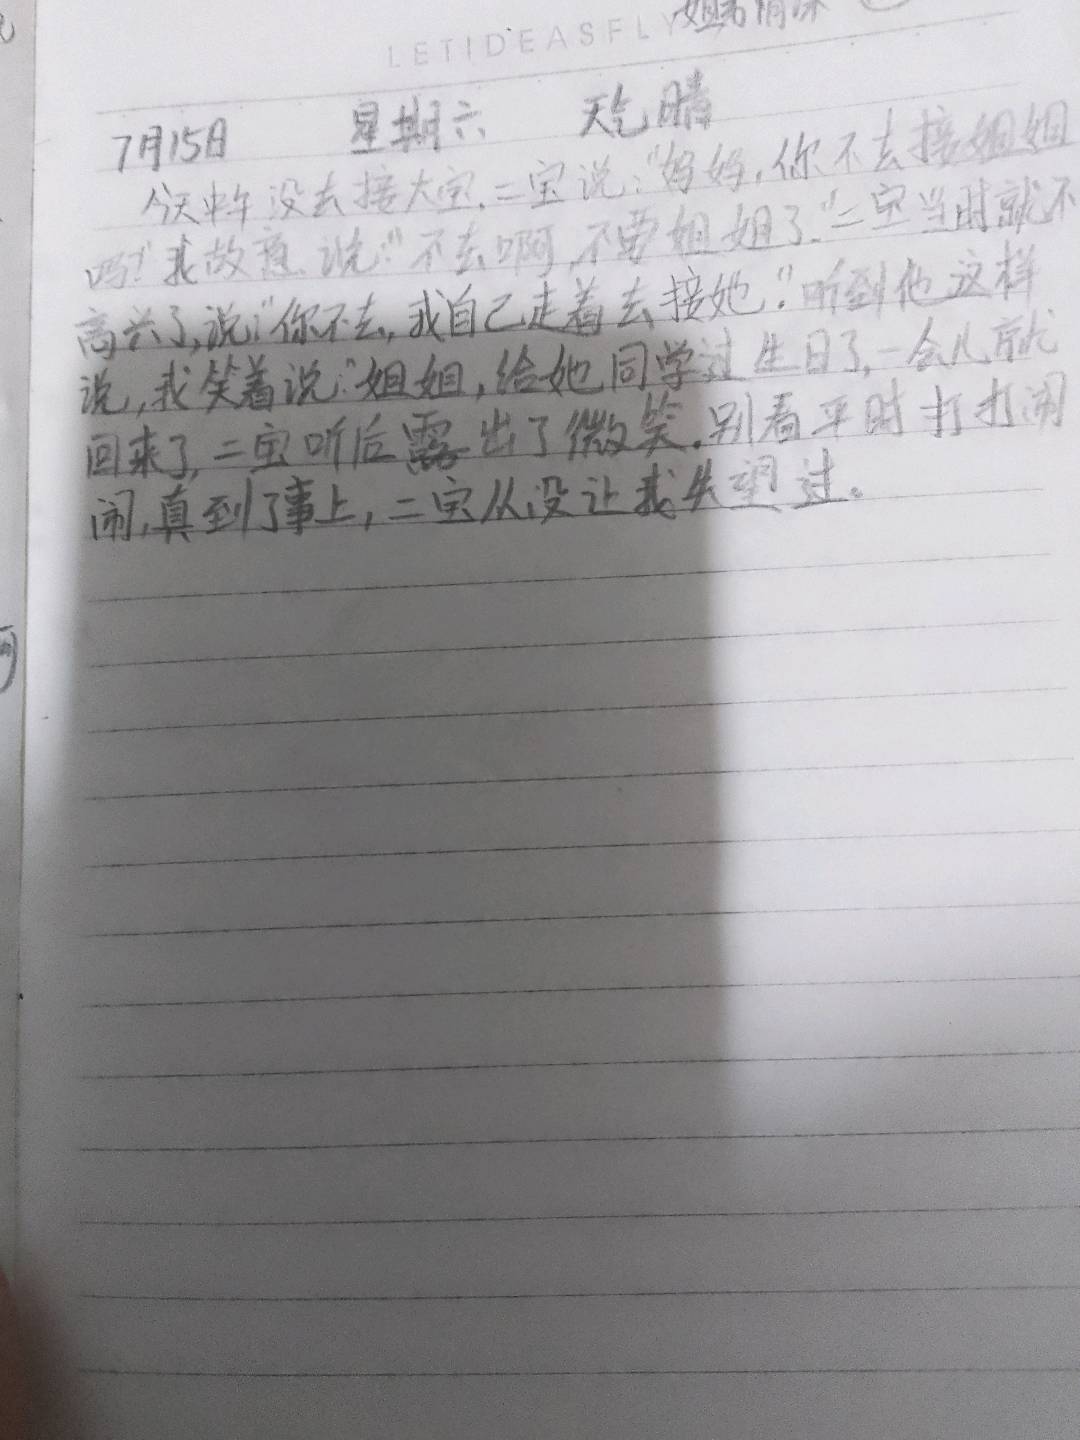 LETIDEASFLY 姐弟情深
7月15日 星期六 天气晴
今天中午没去接大宝,二宝说:"妈妈,你不去接姐姐
吗!"我故意说:"不去啊,不要姐姐了."二宝当时就不
高兴了,说:"你不去,我自己走着去接她."听到他这样
说,我笑着说:"姐姐,给她同学过生日了,一会儿就
回来了,二宝听后露出了微笑.别看平时打打闹
闹,真到了事上,二宝从没让我失望过。